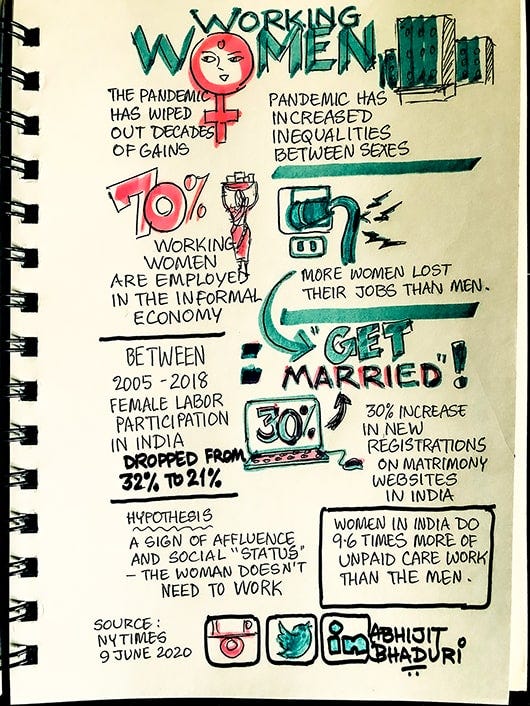 WORKING
WOMEN
THE PANDEMIC
HAS WIPED
OUT DECADES
OF GAINS
PANDEMIC HAS
INCREASED
INEQUALITIES
BETWEEN SEXES
70%
WORKING
WOMEN
ARE EMPLOYED
IN THE INFORMAL
ECONOMY
MORE WOMEN LOST
THEIR JOBS THAN MEN.
"GET
MARRIED"!
BETWEEN
2005 - 2018
FEMALE LABOR
PARTICIPATION
IN INDIA
DROPPED FROM
32% TO 21%
30%
30% INCREASE
IN NEW
REGISTRATIONS
ON MATRIMONY
WEBSITES
IN INDIA
HYPOTHESIS
A SIGN OF AFFLUENCE
AND SOCIAL "STATUS"
- THE WOMAN DOESN'T
NEED TO WORK
WOMEN IN INDIA DO
9.6 TIMES MORE OF
UNPAID CARE WORK
THAN THE MEN.
SOURCE:
NYTIMES
9 JUNE 2020
in
ABHIJIT
BHADURI